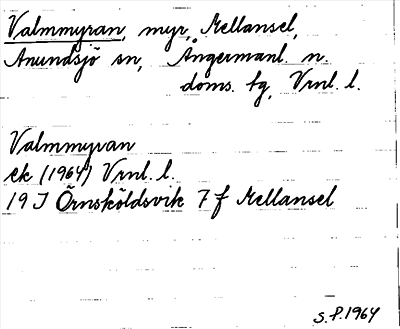 Valmmyran, myr, Mellansel,
Anundsjö sn, Ångermanl. n.
doms. tg, Vrnl. l.
Valmmyran
ek (1964) Vrnl. l.
19 J Örnsköldsvik 7 f Mellansel
S.P.1964